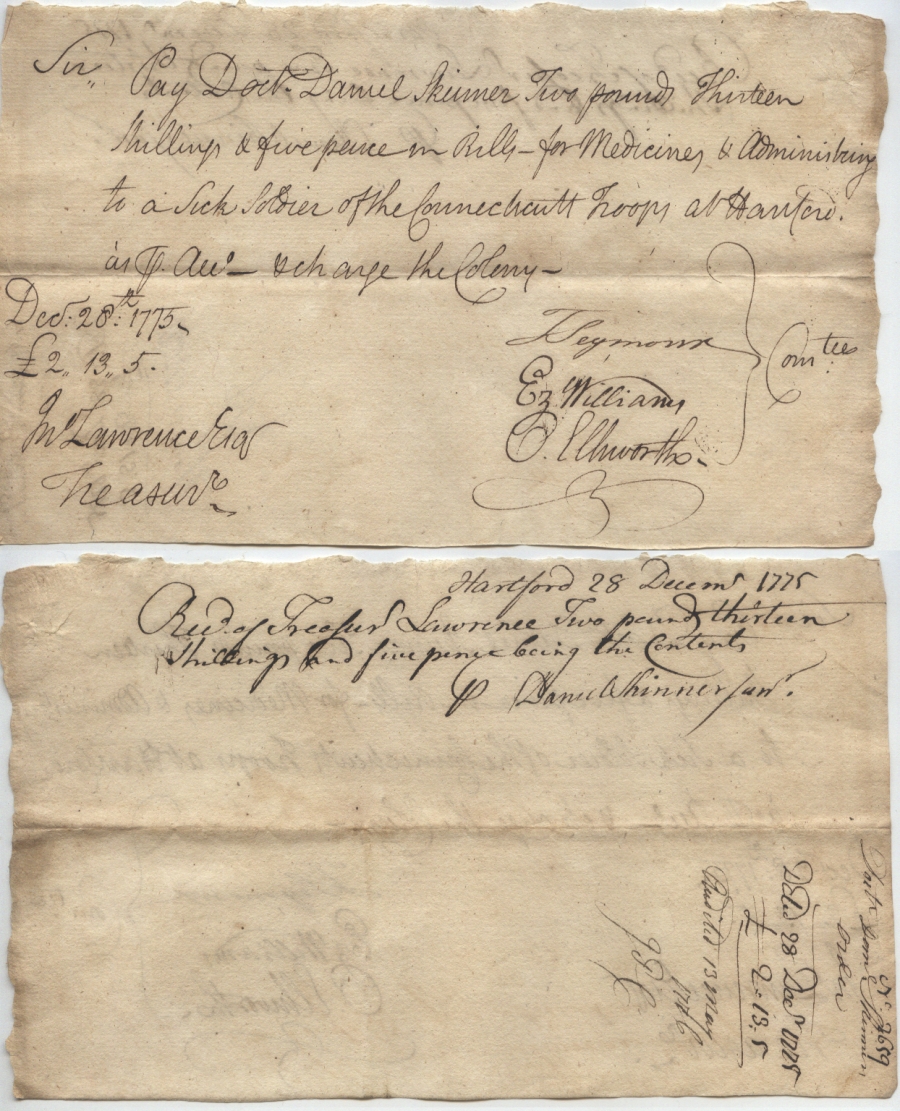 Sir,, Pay Doctr. Daniel Skinner Two pounds Thirteen
shillings & five pence in Bills – for Medicines & Administring
to a Sick Soldier of the Connecticutt Troops at Hartford.
as ⅌. Acct – & charge the Colony –
Decr. 28th. 1775.
£2,, 13,, 5.
T Seymour
Ez Williams
O. Ellsworth
Comtee
Jno Lawrence Esqr
Treasurr
Hartford 28 Decemr 1775
Recd. of Treasurr Lawrence Two pounds thirteen
shillings and five pence being the Contents
⅌ Daniel Skinner Junr.
No. 2659
Doctr Skinner
order
Dated 28 Decr 1775
£ 2.13.5
13 May
1776